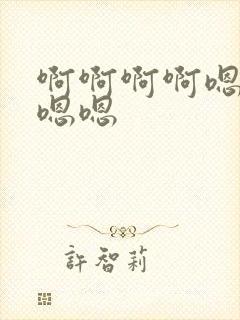 啊啊啊啊嗯
嗯嗯
許智莉